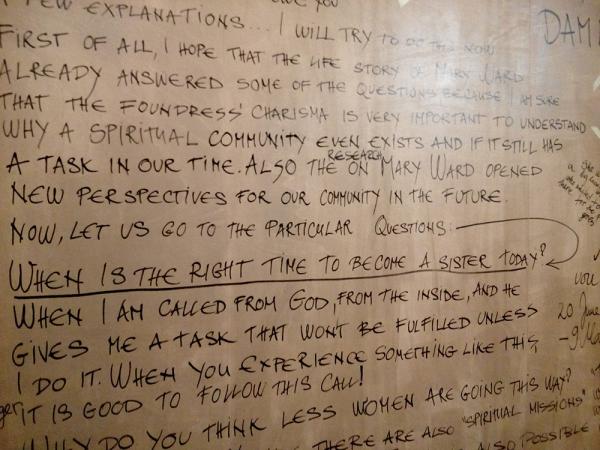 FEW EXPLANATIONS... I WILL TRY TO DO THIS NOW
FIRST OF ALL, I HOPE THAT THE LIFE STORY OF MARY WARD
ALREADY ANSWERED SOME OF THE QUESTIONS BECAUSE I AM SURE
THAT THE FOUNDRESS' CHARISMA IS VERY IMPORTANT TO UNDERSTAND
WHY A SPIRITUAL COMMUNITY EVEN EXISTS AND IF IT STILL HAS
A TASK IN OUR TIME. ALSO THE RESEARCH ON MARY WARD OPENED
NEW PERSPECTIVES FOR OUR COMMUNITY IN THE FUTURE.
NOW, LET US GO TO THE PARTICULAR QUESTIONS:
WHEN IS THE RIGHT TIME TO BECOME A SISTER TODAY?
WHEN I AM CALLED FROM GOD, FROM THE INSIDE, AND HE
GIVES ME A TASK THAT WON'T BE FULFILLED UNLESS
I DO IT. WHEN YOU EXPERIENCE SOMETHING LIKE THIS,
IT IS GOOD TO FOLLOW THIS CALL!
WHY DO YOU THINK LESS WOMEN ARE GOING THIS WAY?
THERE ARE ALSO "SPIRITUAL MISSIONS"
ALSO POSSIBLE
DAM
you
20 June